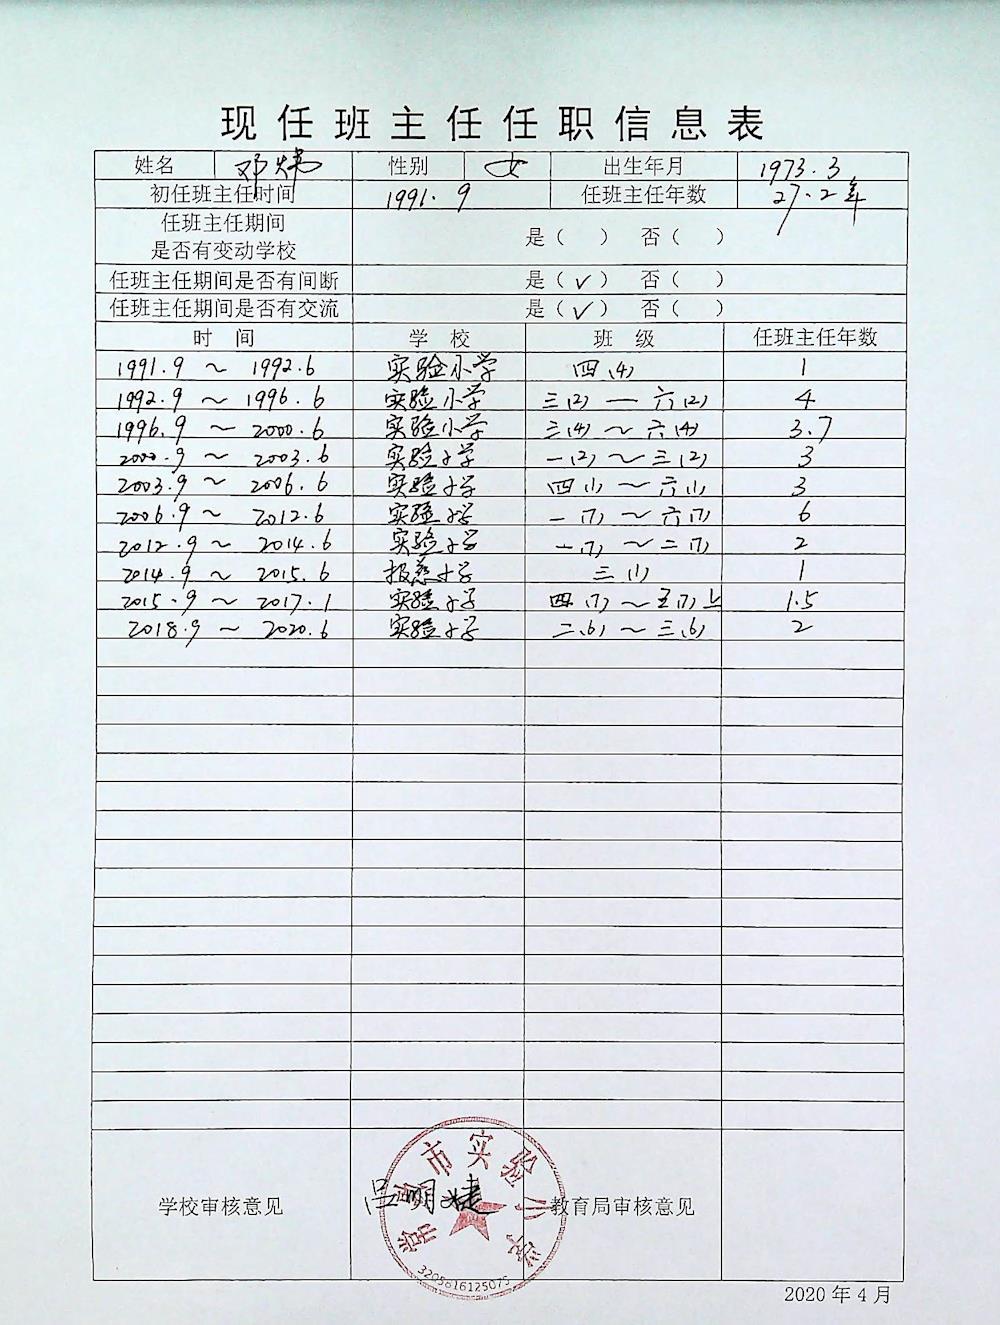 现任班主任任职信息表
姓名 邓炜 性别 女 出生年月 1973.3
初任班主任时间 1991.9 任班主任年数 27.2年
任班主任期间
是否有变动学校 是（ ） 否（ ）
任班主任期间是否有间断 是（✓） 否（ ）
任班主任期间是否有交流 是（✓） 否（ ）
时 间 学 校 班 级 任班主任年数
1991.9 ~ 1992.6 实验小学 四(4) 1
1992.9 ~ 1996.6 实验小学 三(2) — 六(2) 4
1996.9 ~ 2000.6 实验小学 三(4) ~ 六(4) 3.7
2000.9 ~ 2003.6 实验小学 一(2) ~ 三(2) 3
2003.9 ~ 2006.6 实验小学 四(1) ~ 六(1) 3
2006.9 ~ 2012.6 实验小学 一(7) ~ 六(7) 6
2012.9 ~ 2014.6 实验小学 一(7) ~ 二(7) 2
2014.9 ~ 2015.6 报慈小学 三(1) 1
2015.9 ~ 2017.1 实验小学 四(7) ~ 五(7)上 1.5
2018.9 ~ 2020.6 实验小学 二(6) ~ 三(6) 2
常熟市实验小学
学校审核意见 吕明 教育局审核意见
3205816125075
2020年4月